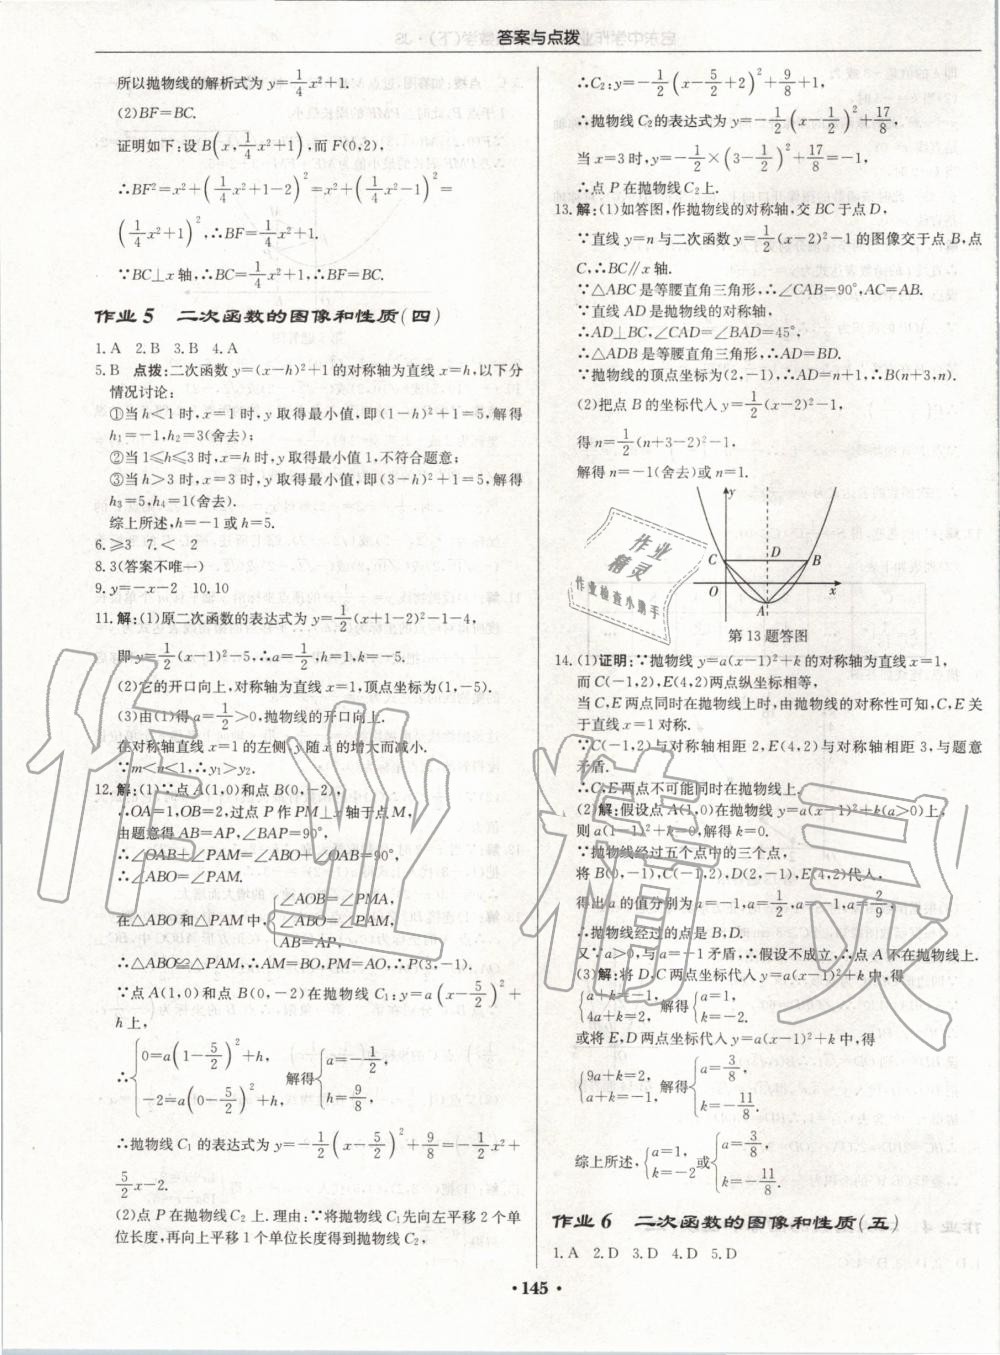 答案与点拨
所以抛物线的解析式为 y=1/4x²+1.
(2)BF=BC.
证明如下:设 B(x,1/4x²+1),而 F(0,2),
∴BF²=x²+(1/4x²+1-2)²=x²+(1/4x²-1)²=
(1/4x²+1)²,∴BF=1/4x²+1.
∵BC⊥x 轴,∴BC=1/4x²+1,∴BF=BC.
作业 5 二次函数的图像和性质(四)
1.A 2.B 3.B 4.A
5.B 点拨:二次函数 y=(x-h)²+1 的对称轴为直线 x=h,以下分
情况讨论:
①当 h<1 时,x=1 时,y 取得最小值,即(1-h)²+1=5,解得
h₁=-1,h₂=3(舍去);
②当 1≤h≤3 时,x=h 时,y 取得最小值 1,不符合题意;
③当 h>3 时,x=3 时,y 取得最小值,即(3-h)²+1=5,解得
h₃=5,h₄=1(舍去).
综上所述,h=-1 或 h=5.
6.≥3 7.< 2
8.3(答案不唯一)
9.y=-x-2 10.10
11.解:(1)原二次函数的表达式为 y=1/2(x+1-2)²-1-4,
即 y=1/2(x-1)²-5,∴a=1/2,h=1,k=-5.
(2)它的开口向上,对称轴为直线 x=1,顶点坐标为(1,-5).
(3)由(1)得 a=1/2>0,抛物线的开口向上.
在对称轴直线 x=1 的左侧,y 随 x 的增大而减小.
∵m<n<1,∴y₁>y₂.
12.解:(1)∵点 A(1,0)和点 B(0,-2),
∴OA=1,OB=2,过点 P 作 PM⊥x 轴于点 M,
由题意得 AB=AP,∠BAP=90°,
∴∠OAB+∠PAM=∠ABO+∠OAB=90°,
∴∠ABO=∠PAM.
在△ABO 和△PAM 中,{∠AOB=∠PMA, ∠ABO=∠PAM, AB=AP,
∴△ABO≌△PAM,∴AM=BO,PM=AO,∴P(3,-1).
∵点 A(1,0)和点 B(0,-2)在抛物线 C₁:y=a(x-5/2)²+
h 上,
∴{0=a(1-5/2)²+h, -2=a(0-5/2)²+h, 解得{a=-1/2, h=9/8,
∴抛物线 C₁ 的表达式为 y=-1/2(x-5/2)²+9/8=-1/2x²+
5/2x-2.
(2)点 P 在抛物线 C₂ 上.理由:∵将抛物线 C₁先向左平移 2 个单
位长度,再向上平移 1 个单位长度得到抛物线 C₂,
∴C₂:y=-1/2(x-5/2+2)²+9/8+1,
∴抛物线 C₂的表达式为 y=-1/2(x-1/2)²+17/8,
当 x=3 时,y=-1/2×(3-1/2)²+17/8=-1,
∴点 P 在抛物线 C₂上.
13.解:(1)如答图,作抛物线的对称轴,交 BC 于点 D,
∵直线 y=n 与二次函数 y=1/2(x-2)²-1 的图像交于点 B,点
C,∴BC∥x 轴.
∵△ABC 是等腰直角三角形,∴∠CAB=90°,AC=AB.
∵直线 AD 是抛物线的对称轴,
∴AD⊥BC,∠CAD=∠BAD=45°,
∴△ADB 是等腰直角三角形,∴AD=BD.
∵抛物线的顶点坐标为(2,-1),∴AD=n+1,∴B(n+3,n).
(2)把点 B 的坐标代入 y=1/2(x-2)²-1,
得 n=1/2(n+3-2)²-1,
解得 n=-1(舍去)或 n=1.
y
C D B
O x
A
第 13 题答图
14.(1)证明:∵抛物线 y=a(x-1)²+k 的对称轴为直线 x=1,
而 C(-1,2),E(4,2)两点纵坐标相等,
当 C,E 两点同时在抛物线上时,由抛物线的对称性可知,C,E 关
于直线 x=1 对称.
∵C(-1,2)与对称轴相距 2,E(4,2)与对称轴相距 3,与题意
矛盾.
∴C,E 两点不可能同时在抛物线上.
(2)解:假设点 A(1,0)在抛物线 y=a(x-1)²+k(a>0)上,
则 a(1-1)²+k=0,解得 k=0.
∵抛物线经过五个点中的三个点,
将 B(0,-1),C(-1,2),D(2,-1),E(4,2)代入,
得出 a 的值分别为 a=-1,a=1/2,a=-1,a=2/9,
∴抛物线经过的点是 B,D.
又∵a>0,与 a=-1 矛盾,∴假设不成立,∴点 A 不在抛物线上.
(3)解:将 D,C 两点坐标代入 y=a(x-1)²+k 中,得
{a+k=-1, 4a+k=2, 解得{a=1, k=-2.
或将 E,D 两点坐标代入 y=a(x-1)²+k 中,得
{9a+k=2, a+k=-1, 解得{a=3/8, k=-11/8.
综上所述,{a=1, k=-2 或{a=3/8, k=-11/8.
作业 6 二次函数的图像和性质(五)
1.A 2.D 3.D 4.D 5.D
·145·
作业
精灵
作业检查小助手
作业精灵